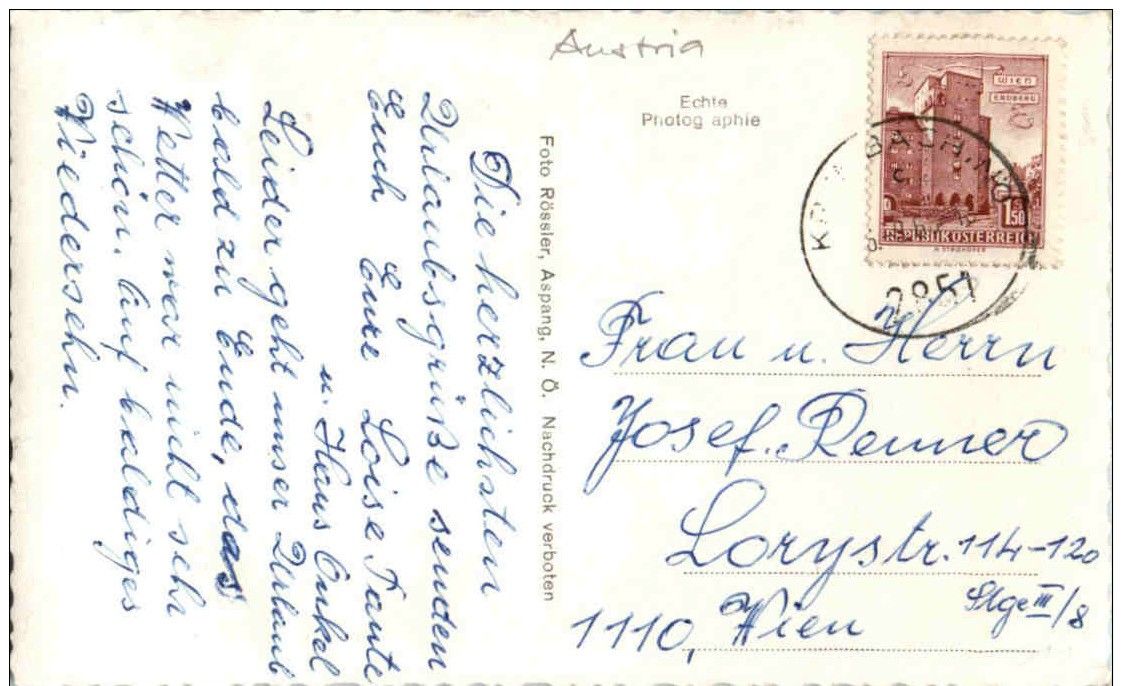 Austria
Echte
Photog aphie
WIEN
ERDBERG
1.50
REPUBLIK ÖSTERREICH
2851
Die herzlichsten
Urlaubsgrüße senden
Euch Eure Loise Tante
u. Hans Onkel
Leider geht unser Urlaub
bald zu Ende, das
Wetter war nicht sehr
schön. Auf baldiges
Wiedersehn.
Foto Rössler, Aspang, N. Ö. Nachdruck verboten
Frau u. Herrn
Josef Renner
Lorystr. 114-120
Stge III/8
1110, Wien